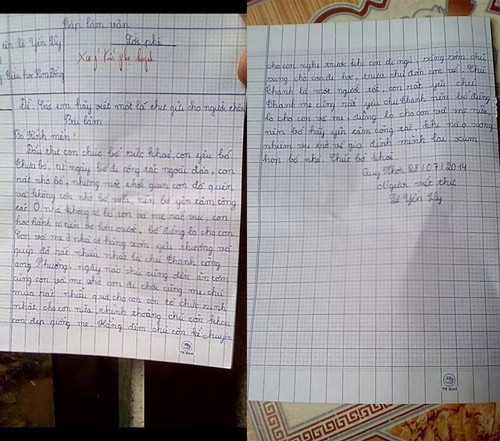 Tập làm văn
Lời phê
Lê Yến Vy
Đề: Các em hãy viết một lá thư gửi cho người thân
Bài làm
Bố kính mến!
Đầu thư con chúc bố sức khoẻ, con yêu bố
Thưa bố, từ ngày bố đi công tác ngoài đảo, con
rất nhớ bố, nhưng một thời gian con đã quen
và không còn nhớ bố nữa, nên bố yên tâm công
tác. Ở nhà không có bố con và mẹ rất vui, con
học hành có tiến bộ hơn trước, bố đừng lo cho con
Con và mẹ ở nhà có hàng xóm yêu thương và
giúp đỡ rất nhiều nhất là chú Thanh công
an Phường, ngày nào chú cũng đến ăn cơm
cùng con và mẹ chở con đi chơi cùng mẹ, chú
mua rất nhiều quà cho con còn tổ chức sinh
nhật cho con nữa, thỉnh thoảng chú còn khen
con đẹp giống mẹ. Hàng đêm chú còn kể chuyện
cho con nghe trước khi con đi ngủ, sáng sớm chú
sang chở con đi học, trưa chú đón con về. Chú
Thanh là một người tốt, con rất yêu chú
Thanh mẹ cũng rất yêu chú Thanh nên bố đừng
lo cho con và mẹ, đừng lo cho con và mẹ nữa,
nên bố hãy yên tâm công tác, khi nào xong
nhiệm vụ trở về gia đình mình lại sum
họp bố nhé. Chúc bố khoẻ.
Quy Nhơn 28/07/2014
Người viết thư
Lê Yến Vy